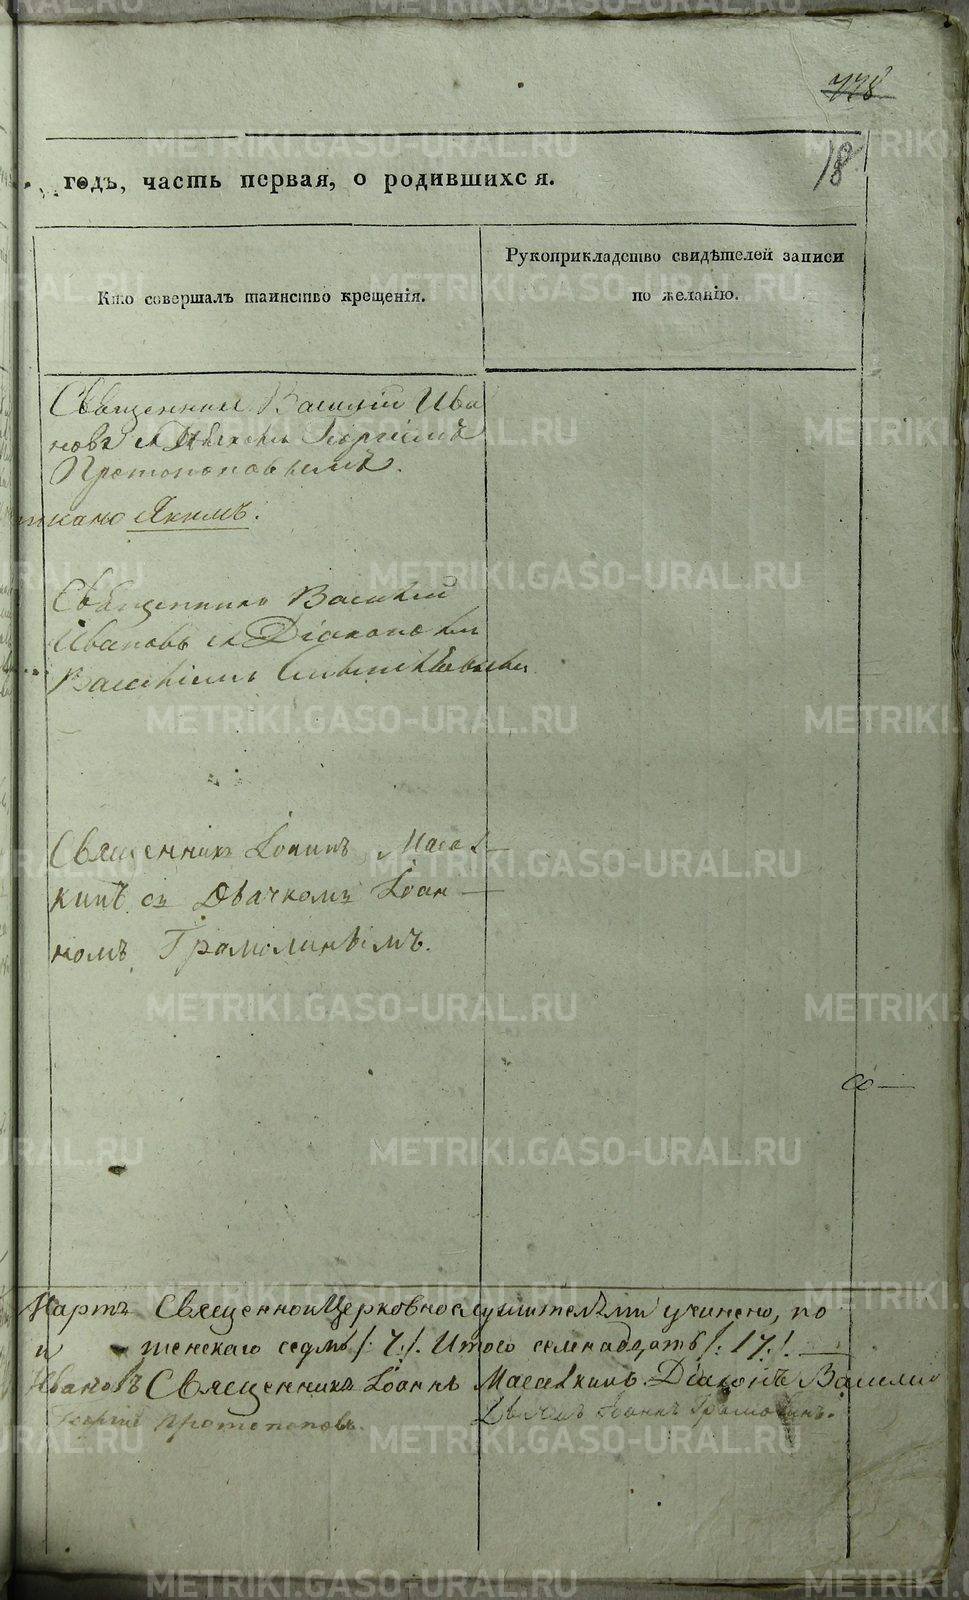 778
18
годъ, часть первая, о родившихся.
Кто совершалъ таинство крещенія.
Рукоприкладство свидѣтелей записи
по желанію.
Священникъ Василій Ива
новъ
Протопоповымъ.
Якимъ.
Священникъ Василій
Ивановъ съ Діакономъ
Василіемъ
Священникъ Іоаннъ Масал
кинъ съ Дьячкомъ Іоан
номъ Грамолинымъ.
Мартъ Священноцерковнослужительми учинено, по
седмь /:7:/. Итого семнадцать /:17:/.
Ивановъ Священникъ Іоаннъ Масалкинъ. Діаконъ Василій
Георгій Протопоповъ. Іоаннъ Грамолинъ.
METRIKI.GASO-URAL.RU